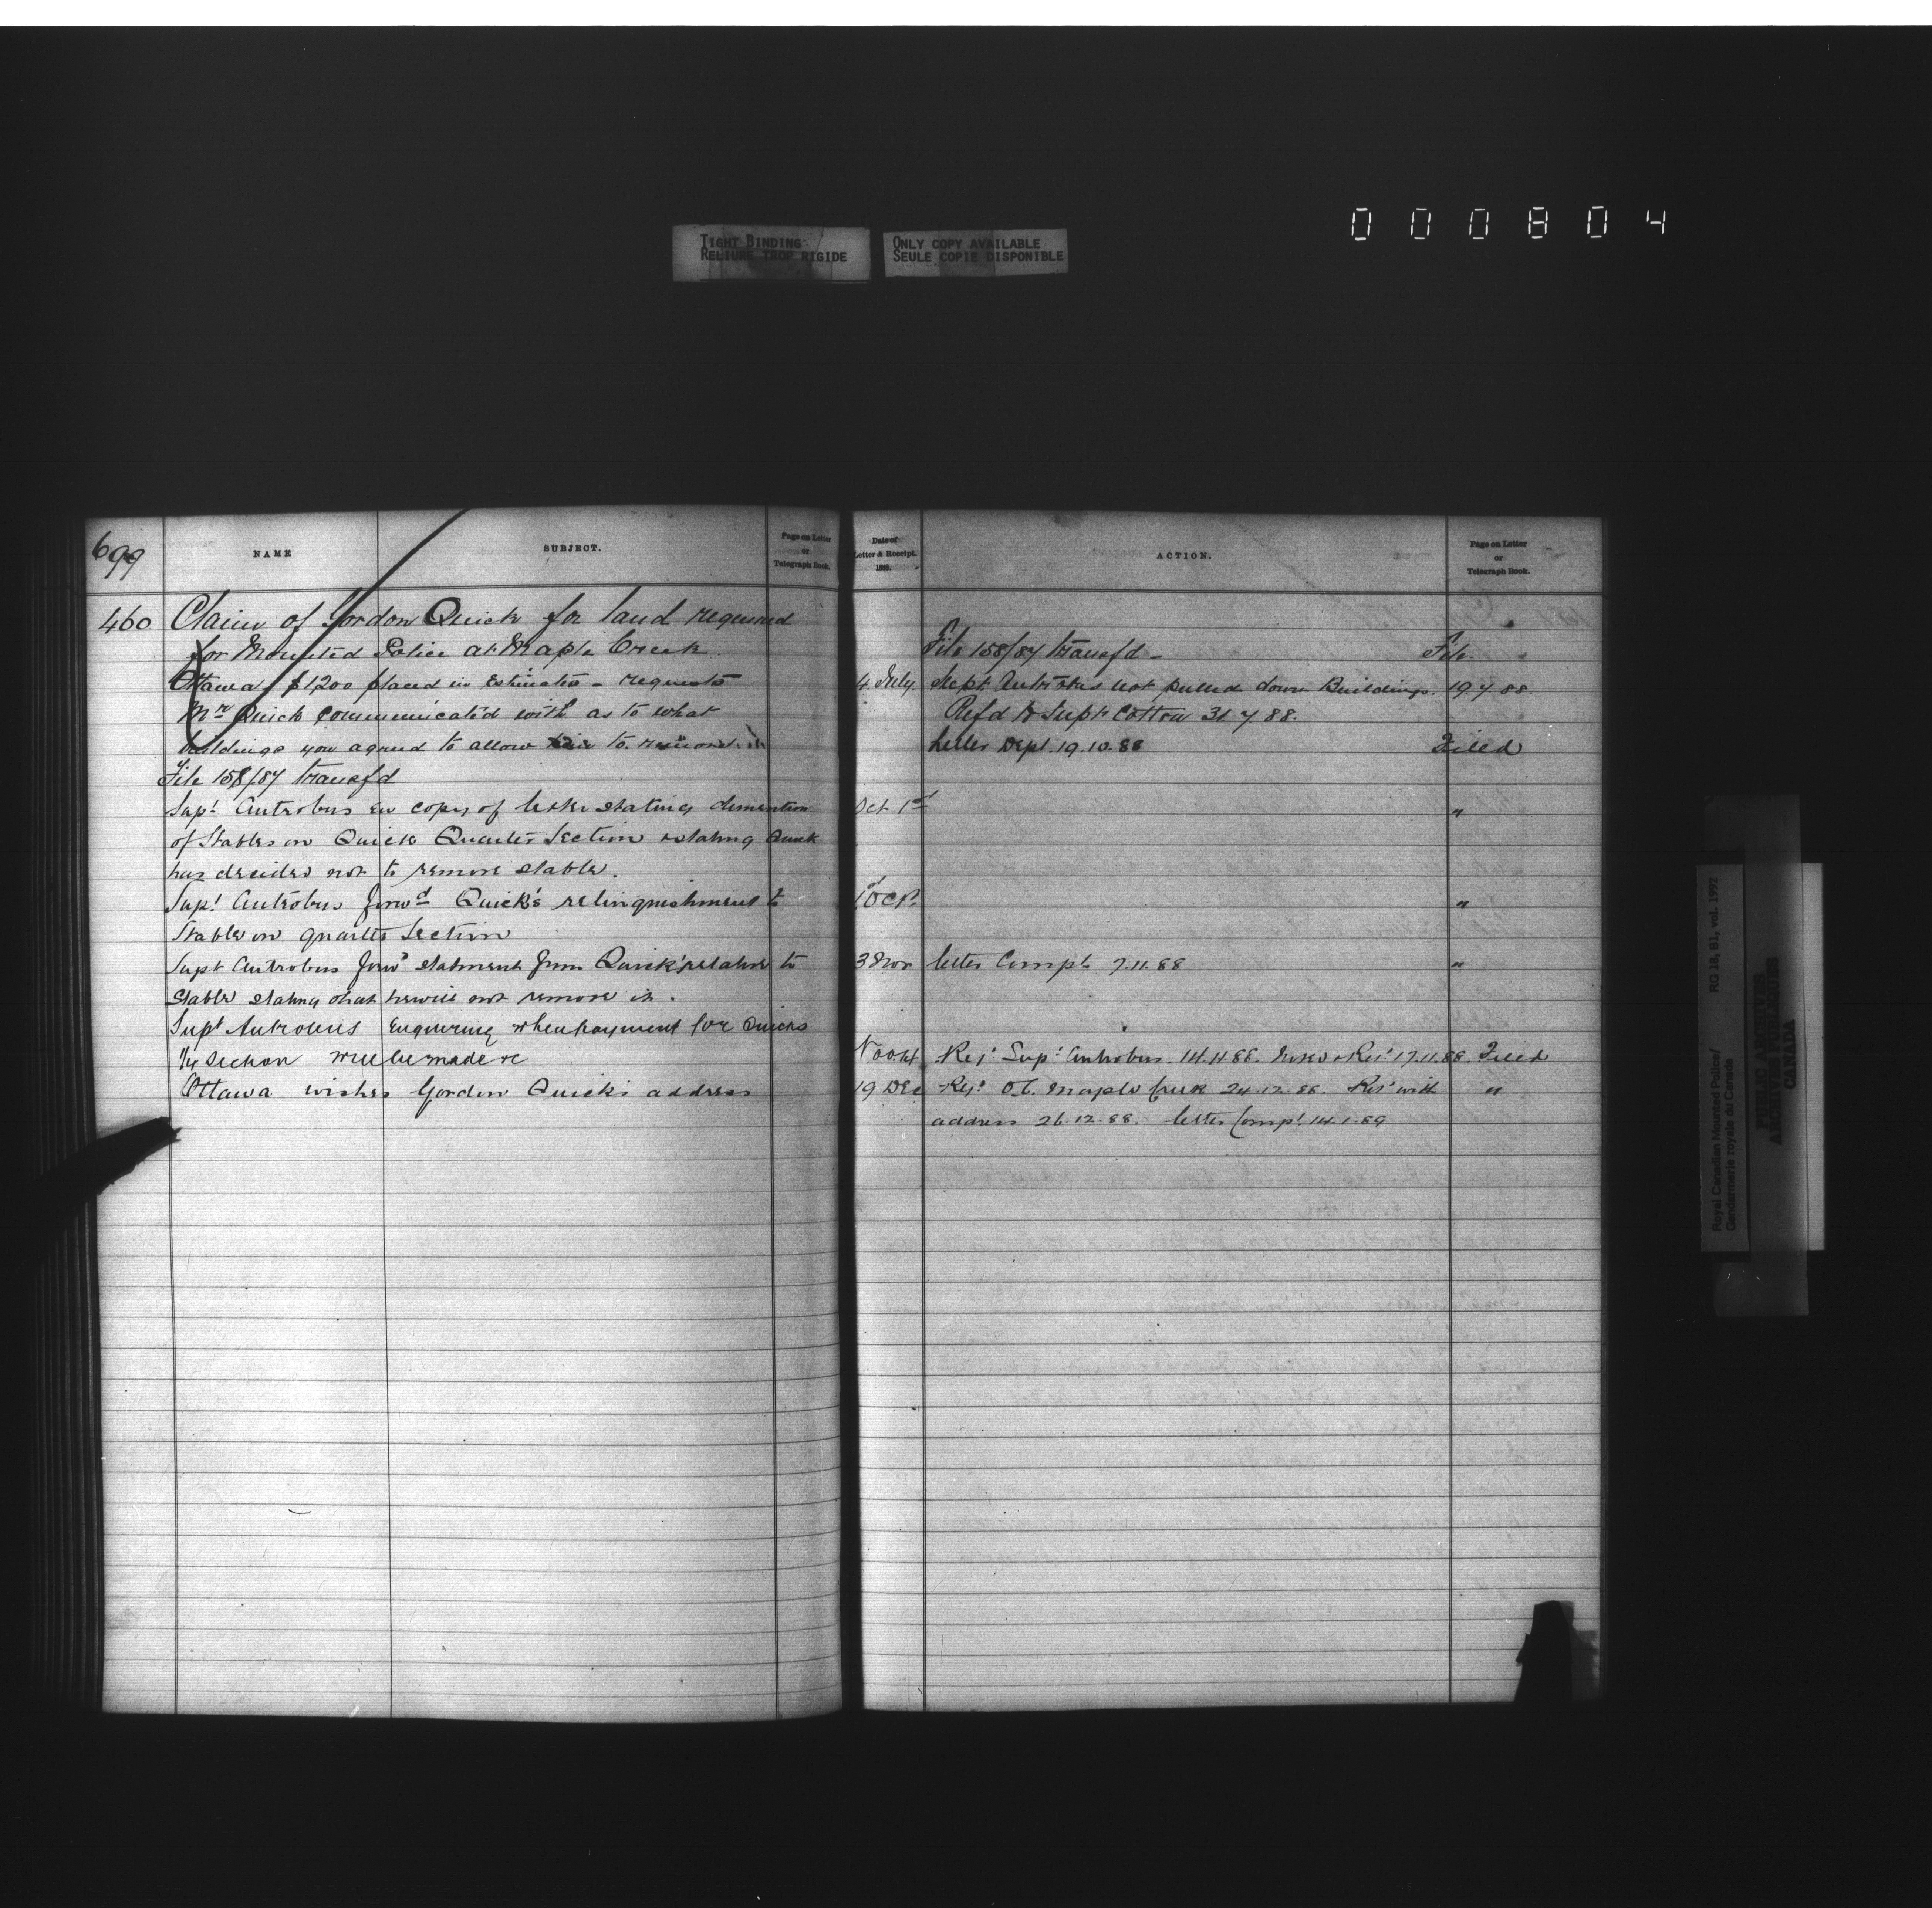 000804
TIGHT BINDING
RELIURE TROP RIGIDE
ONLY COPY AVAILABLE
SEULE COPIE DISPONIBLE
699
NAME
SUBJECT.
Page on Letter
or
Telegraph Book.
460
Claim of Gordon Quick for land required
for Mounted Police at Maple Creek
Ottawa - $1,200 placed in Estimates - requests
Mr Quick communicated with as to what
buildings you agreed to allow him to remove
File 158/87 transfd
Supt Antrobus en copy of letter stating dimention
of Stables on Quick Quarter Section stating Quick
has decided not to remove stable.
Supt Antrobus forwd Quick's relinquishment to
Stable on quarter Section
Supt Antrobus forwd statment from Quick relative to
Stable stating that he will not remove it.
Supt Antrobus Enquiring when payment for Quicks
1/4 Section will be made &c
Ottawa wishes Gordon Quick's address
Date of
Letter & Receipt.
188 .
ACTION.
Page on Letter
or
Telegraph Book.
File 158/87 transfd - File
4 July Supt Antrobus not pulled down Buildings. 19.7.88.
Refd to Supt Cotton 31.7.88.
Letter Dept. 19.10.88 Filed
Oct 1st "
1st Oct "
3 Nov letter Compt 7.11.88 "
Nov Supt Antrobus 14.11.88. 17.11.88. Filed
19 Dec O.C. Maple Creek 24.12.88. with "
address 26.12.88. letter Compt 14.1.89
Royal Canadian Mounted Police/
Gendarmerie royale du Canada
RG 18, B1, vol. 1992
PUBLIC ARCHIVES
ARCHIVES PUBLIQUES
CANADA